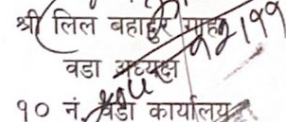 श्री लिल बहादुर
वडा अध्यक्ष
१० नं. वडा कार्यालय